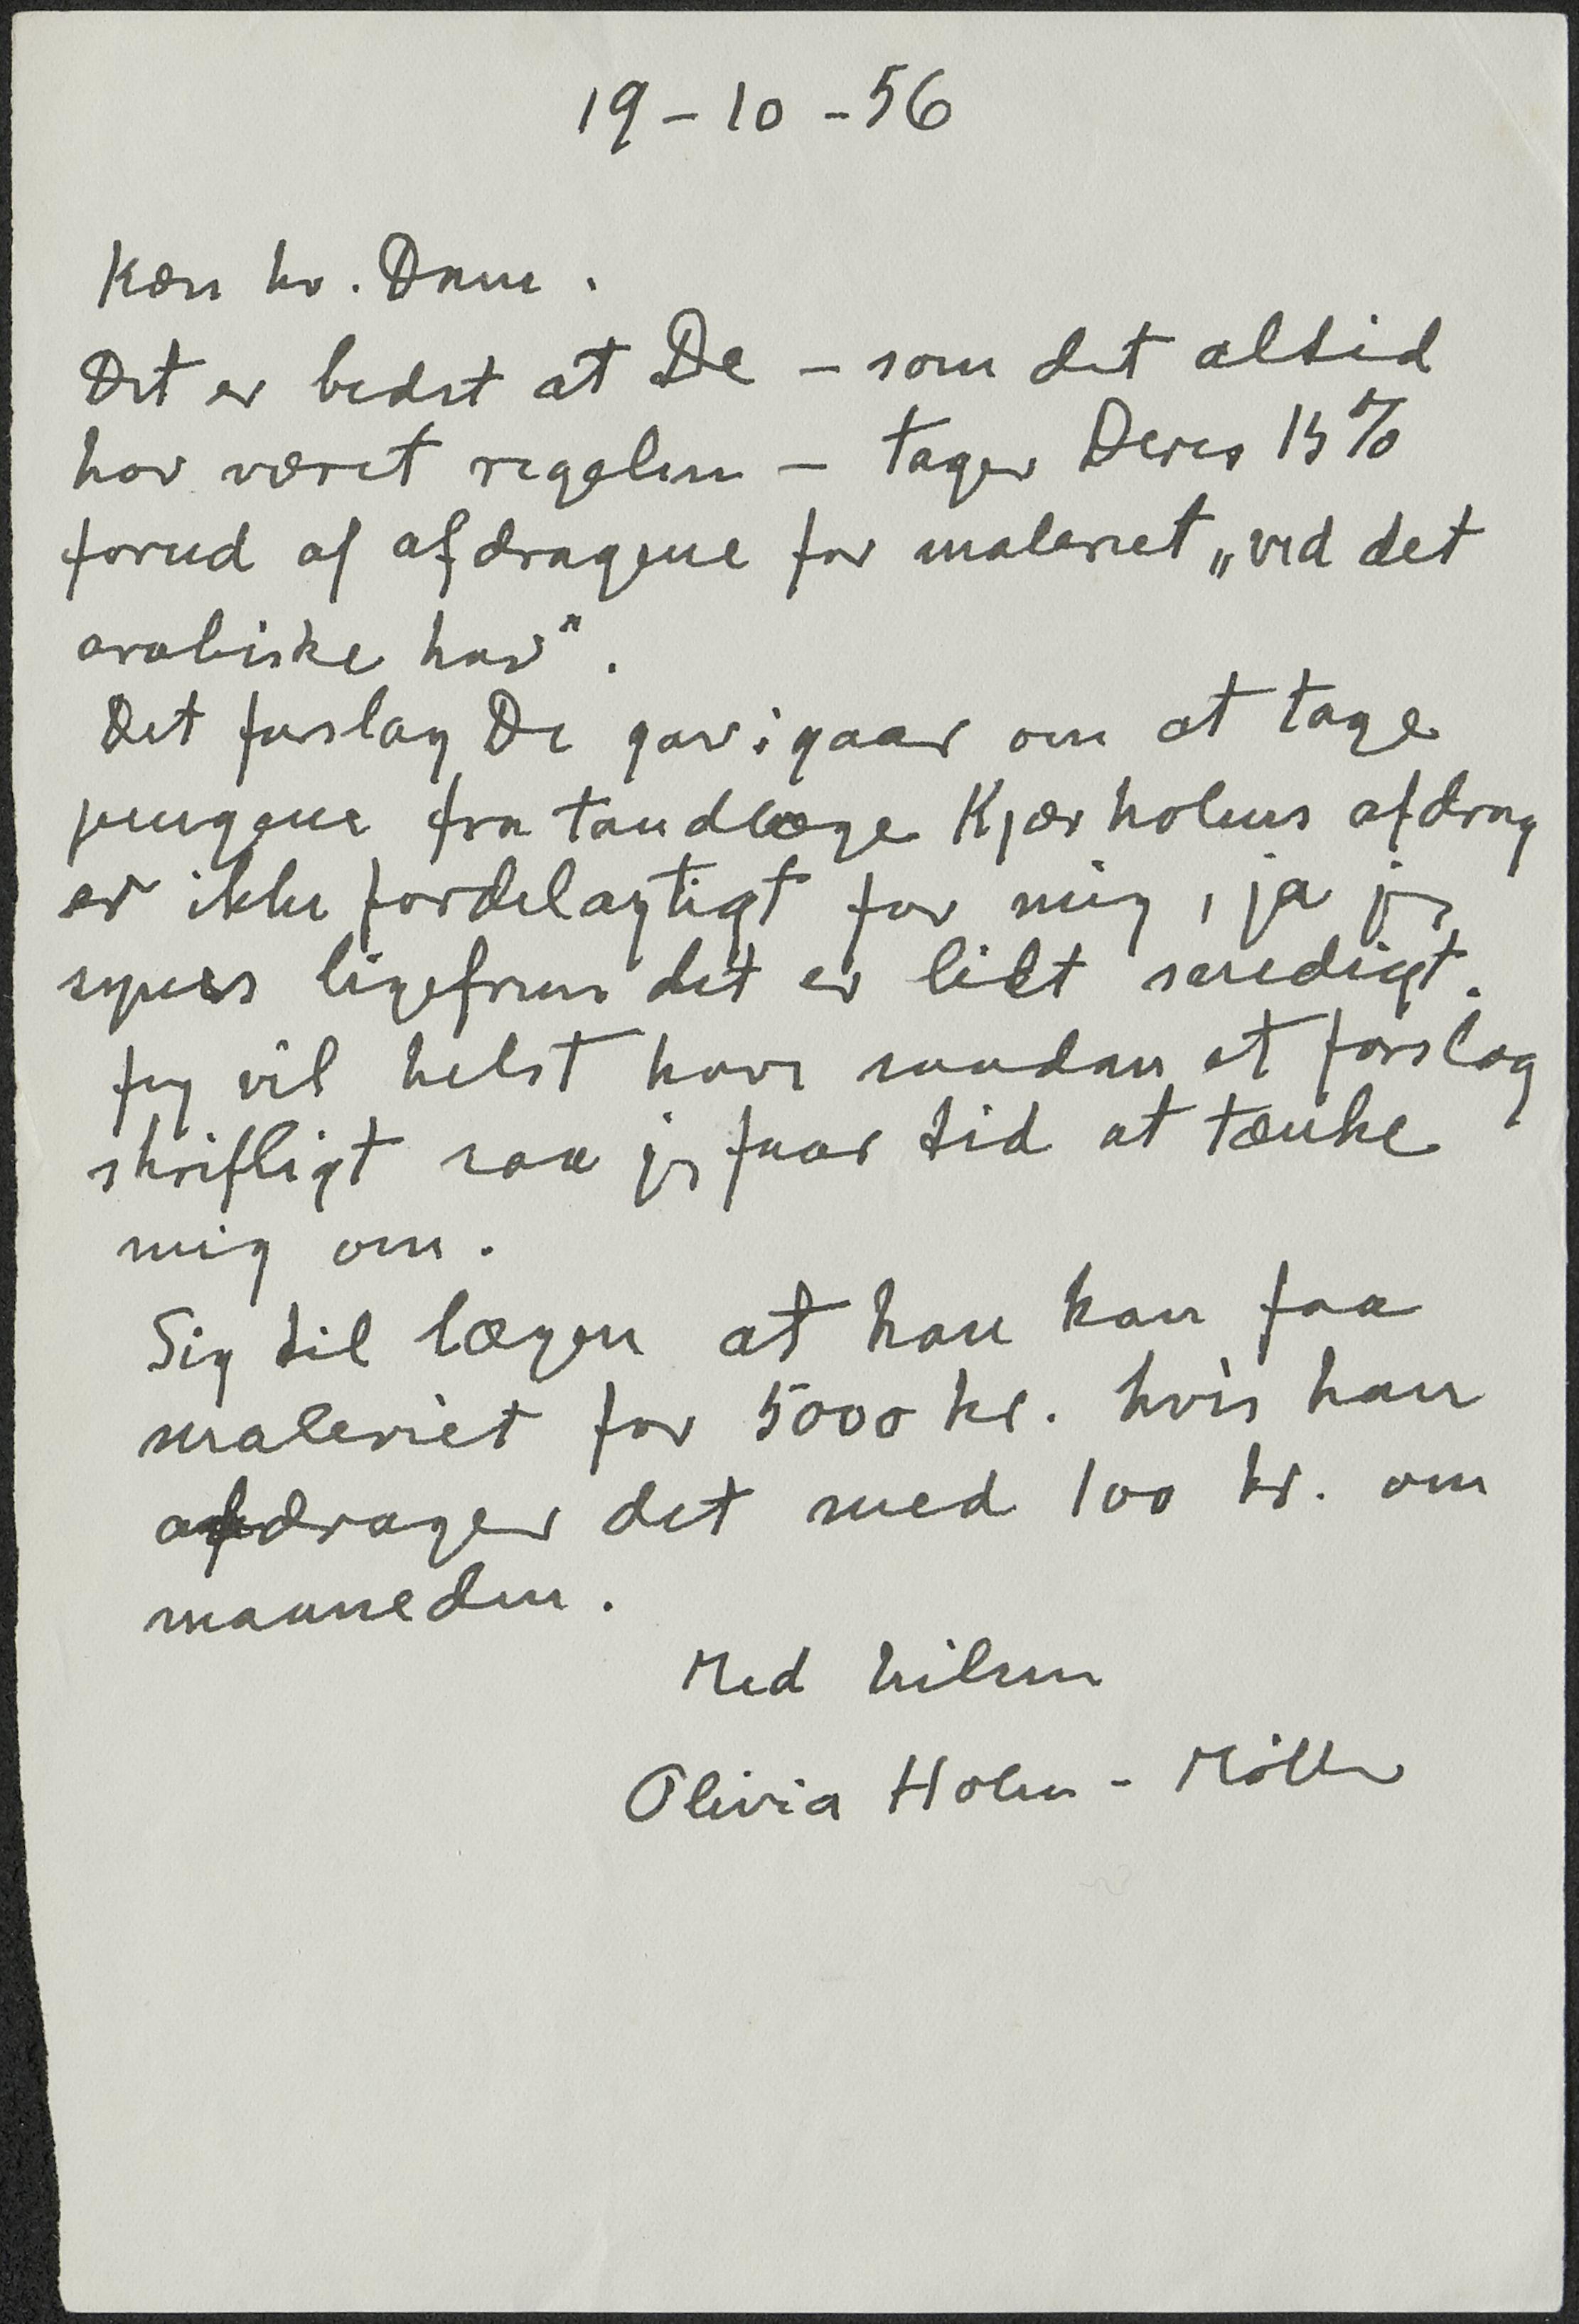 19-10-56
Kære hr. Dam.
Det er bedst at De – som det altid
har været reglen – tager Deres 15%
forud af afdragene for maleriet „ved det
arabiske hav".
Det forslag De gav igaar om at tage
pengene fra tandlæge Kjærholms afdrag
er ikke fordelagtigt for mig, ja jeg
synes ligefrem det er lidt smedigt.
Jeg vil helst have saadan et forslag
skriftligt saa jeg faar tid at tænke
mig om.
Sig til lægen at han kan faa
maleriet for 5000 kr. hvis han
afdrager det med 100 kr. om
maaneden.
Med hilsen
Olivia Holm-Møller